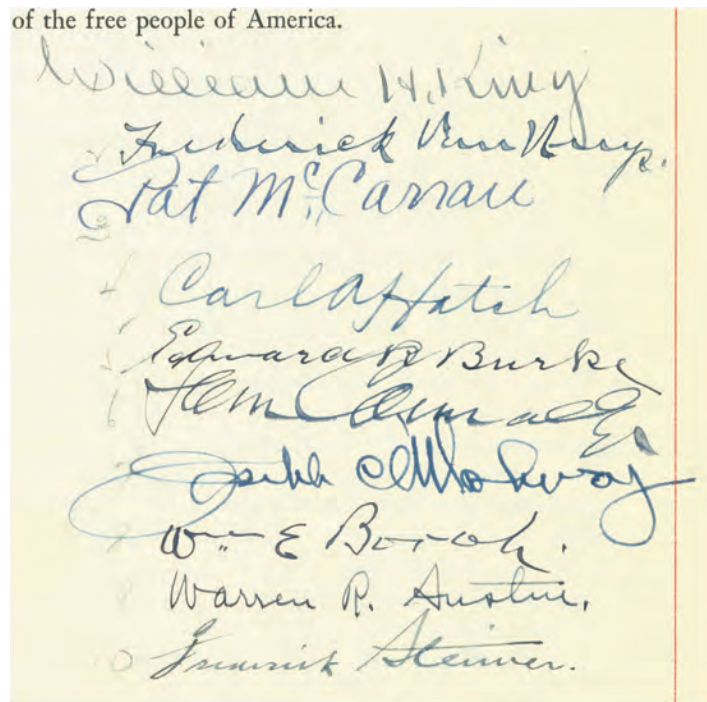 of the free people of America.
William H. King
Frederick Van Nuys.
Pat McCarran
Carl A. Hatch
Edward R. Burke
Tom Connally
Joseph C. O'Mahoney
Wm E Borah.
Warren R. Austin.
Frederick Steiwer.